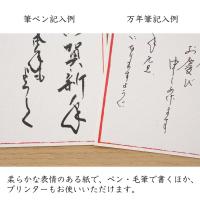 筆ペン記入例
万年筆記入例
賀新年
お慶び
申しあげます
ますよう
元旦
柔らかな表情のある紙で、ペン・毛筆で書くほか、
プリンターもお使いいただけます。